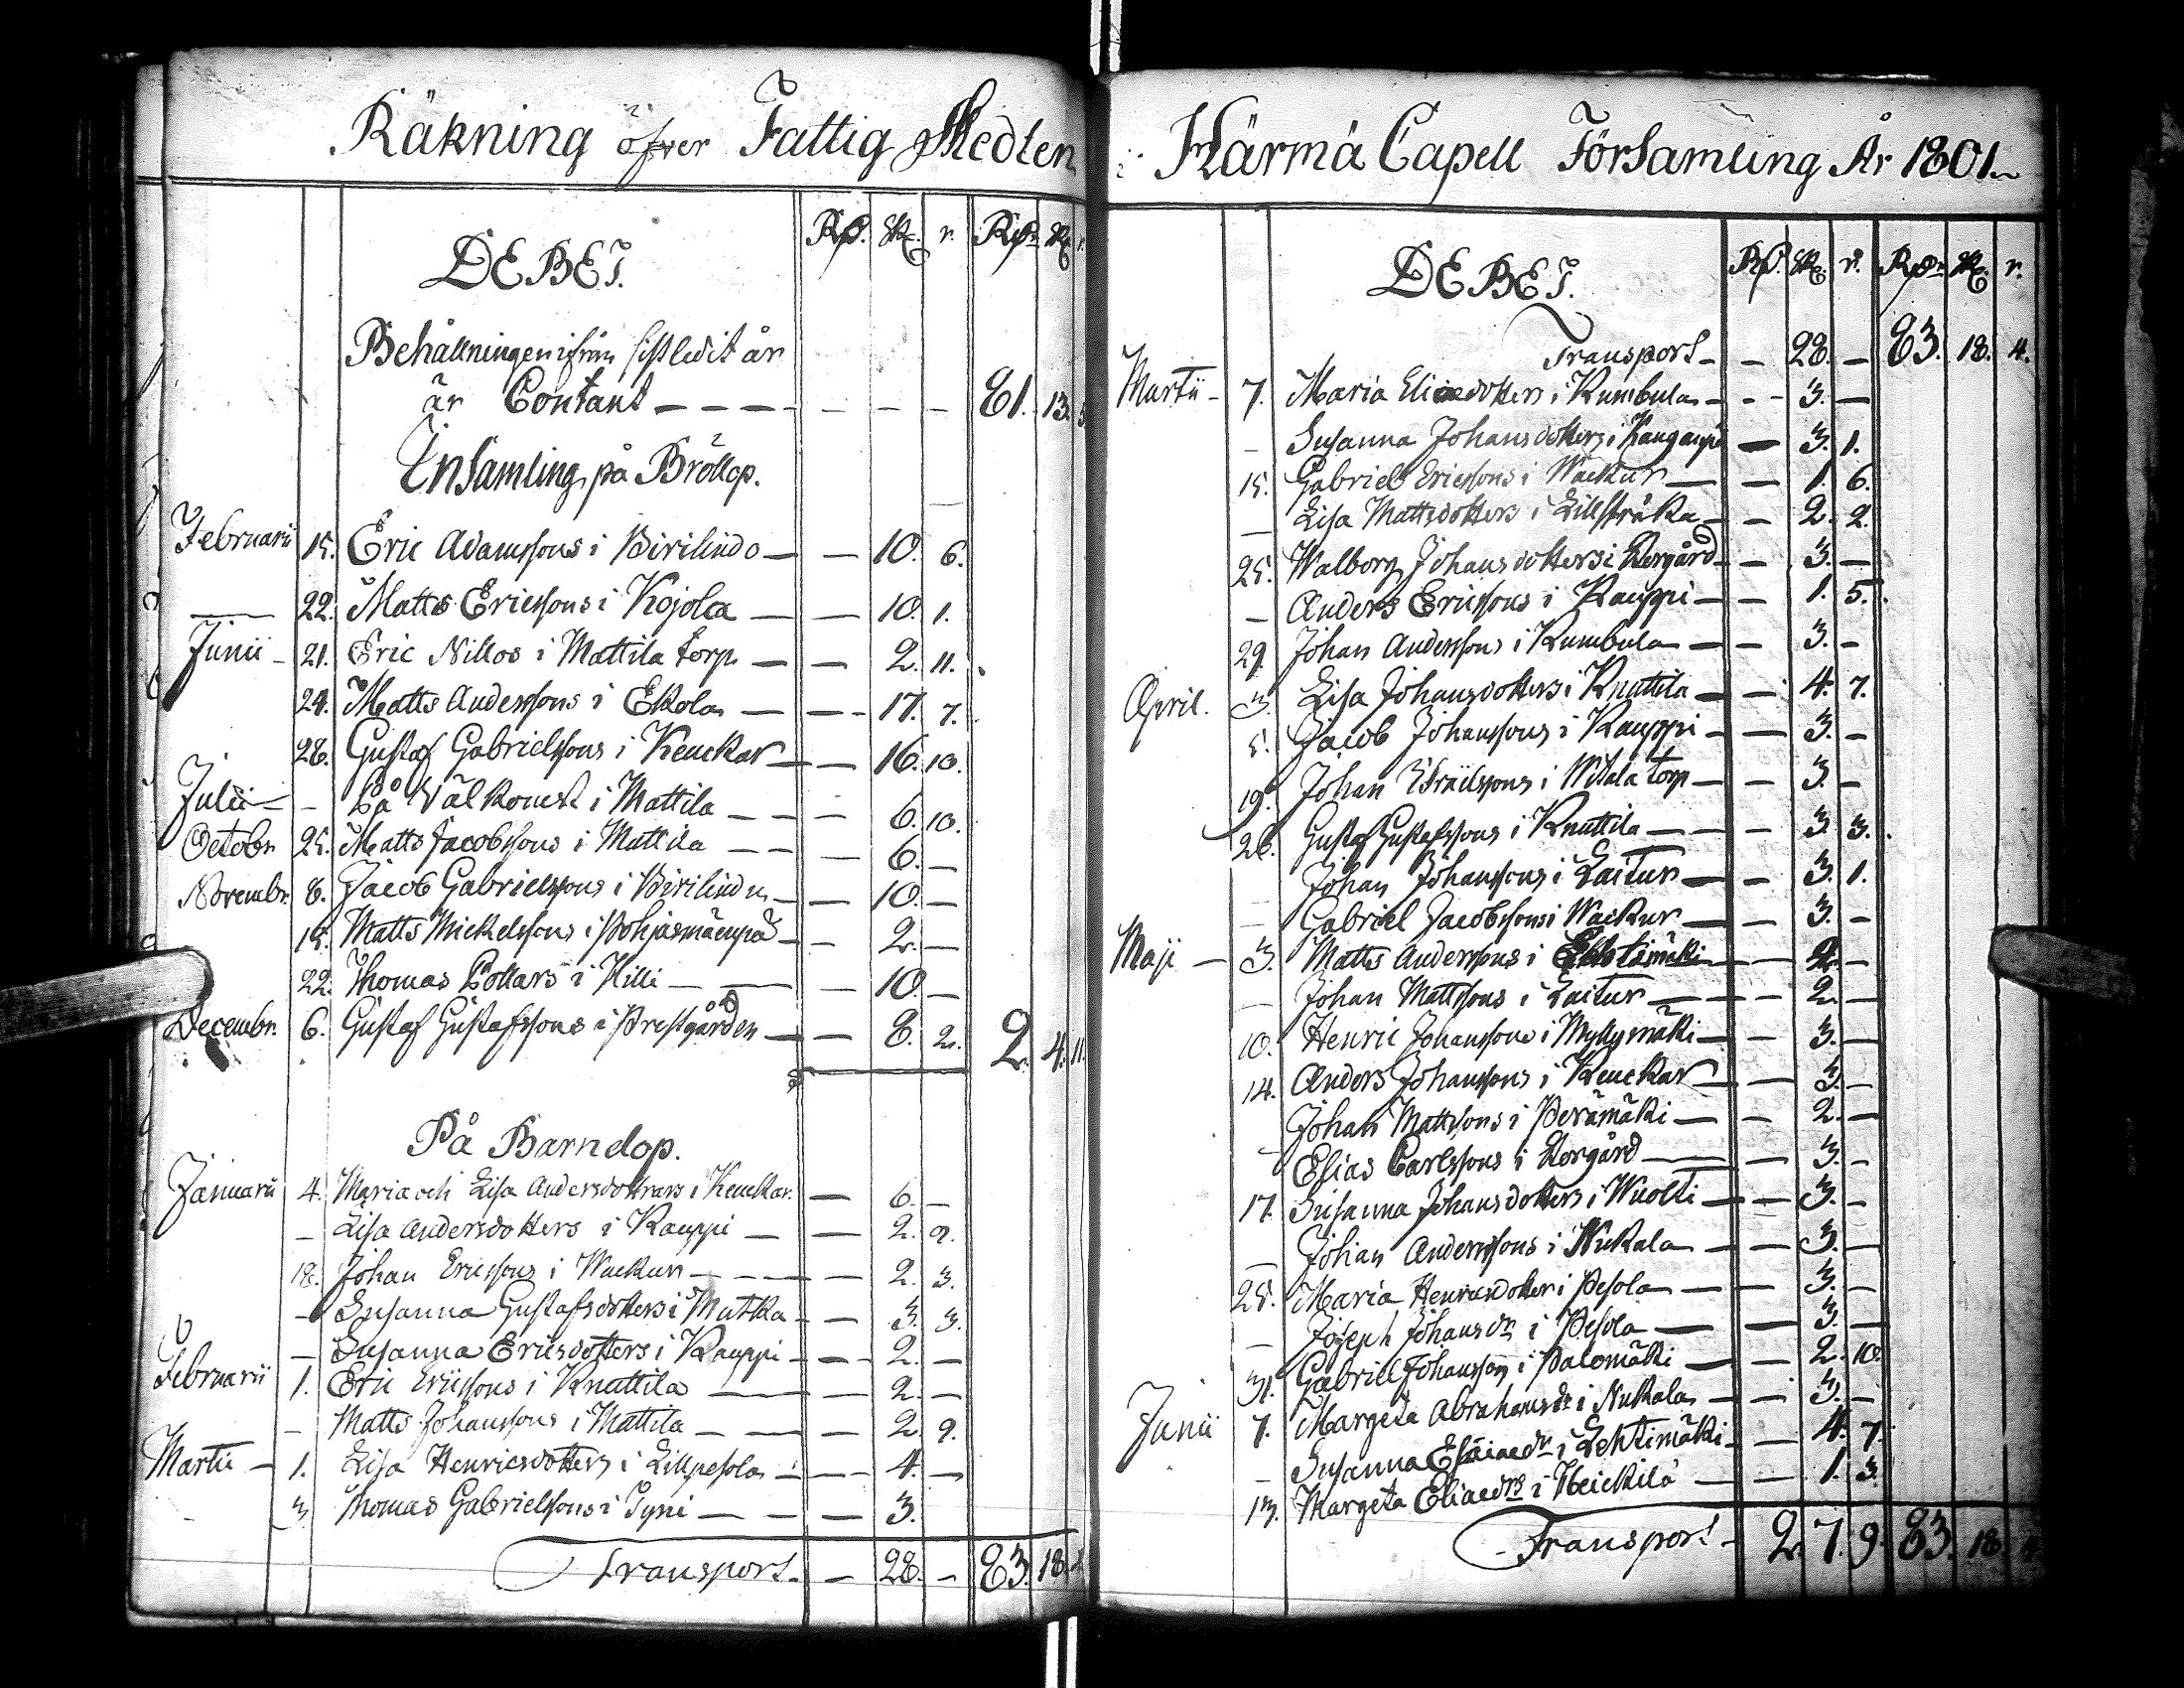 Räkning öfver Fattig Medlen
DEBET. Rd. sk. r. Rdr sk. r.
Behållningen ifrån sistledit år
är Contant - - - - - - - 81. 13. 5
Insamling på Bröllop.
Februarii 15. Eric Adamssons i Birilindo - - 10. 6.
22. Matts Ericssons i Kojola - - 10. 1.
Junii - 21. Eric Nillos i Mattila torp - - 2. 11.
24. Matts Anderssons i Ekola - - 17. 7.
28. Gustaf Gabrielssons i Keuckar - - 16. 10.
Julii - - På Välkomst i Mattila - - - 6. 10.
Octobr. 25. Matts Jacobssons i Mattila - - - 6. -
Novembr. 8. Jacob Gabrielssons i Birilindu - - 10. -
15. Matts Mickelssons i Pohjasmäenpä - - 2. -
22. Thomas Pottars i Hilli - - - 10. -
Decembr. 6. Gustaf Gustafssons i Prestgården - - 8. 2. 2. 4. 11.
På Barndop.
Januarii 4. Maria och Lisa Andersdottrars i Keuckar. - 6. -
- Lisa Andersdotters i Kauppi - - 2. 9.
18. Johan Ericssons i Wuckur - - - 2. 3.
- Susanna Gustafsdotters i Mutka - - 3. 3.
- Susanna Ericsdotters i Kauppi - - 2. -
Februarii 1. Eric Ericssons i Knuttila - - 2. -
- Matts Johanssons i Mattila - - - 2. 9.
Martii - 1. Lisa Henricsdotters i Lillpesola - - 4. -
3. Thomas Gabrielssons i Typi - - - 3.
Transport. - 28. - 83. 18. 4.
i Härmä Capell Församling År 1801.
DEBET. Rd. sk. r. Rdr sk. r.
Transport - - 28. - 83. 18. 4.
Martii - 7. Maria Eliaedotters i Kumbula - - - 3. -
- Susanna Johansdotters i Kangaspä - 3. 1.
15. Gabriel Ericssons i Wuckur - - 1. 6.
- Lisa Mattsdotters i Lillstråka - - 2. 2.
25. Walborg Johansdotters i Storgård - - 3. -
- Anders Ericssons i Kauppi - - 1. 5.
29. Johan Anderssons i Kumbula - - 3. -
April. 3. Lisa Johansdotters i Knuttila - - 4. 7.
5. Jacob Johanssons i Kauppi - - 3. -
19. Johan Israelssons i Witala torp - - 3. -
26. Gustaf Gustafssons i Knuttila - - - 3. 3.
Johan Johanssons i Laitur - - 3. 1.
- Gabriel Jacobssons i Wackur - - 3. -
Maji - 3. Matts Anderssons i - - 2. -
- Johan Mattssons i Laitur - - - 2. -
10. Henric Johanssons i Myllymäki - - 3. -
14. Anders Johanssons i Keuckar - - 3. -
Johan Mattssons i Perämäki - - 2. -
- Elias Carlssons i Storgård - - 3. -
17. Susanna Johansdotters i Wuolti - - 3. -
- Johan Anderssons i Nukala - - 3. -
25. Maria Henricsdotter i Pesola - - 3. -
- Joseph Johansdr i Pesola - - 3. -
31. Gabriel Johansson i Palomäki - - 2. 10.
Junii 7. Margeta Abrahamsdr i Nukala - - 3. -
- Susanna Esaiaedr i Lehtimäki - - 4. 7.
13. Margeta Eliaedrs i Heickilä - - 1. 3.
Transport - 2. 7. 9. 83. 18. 4